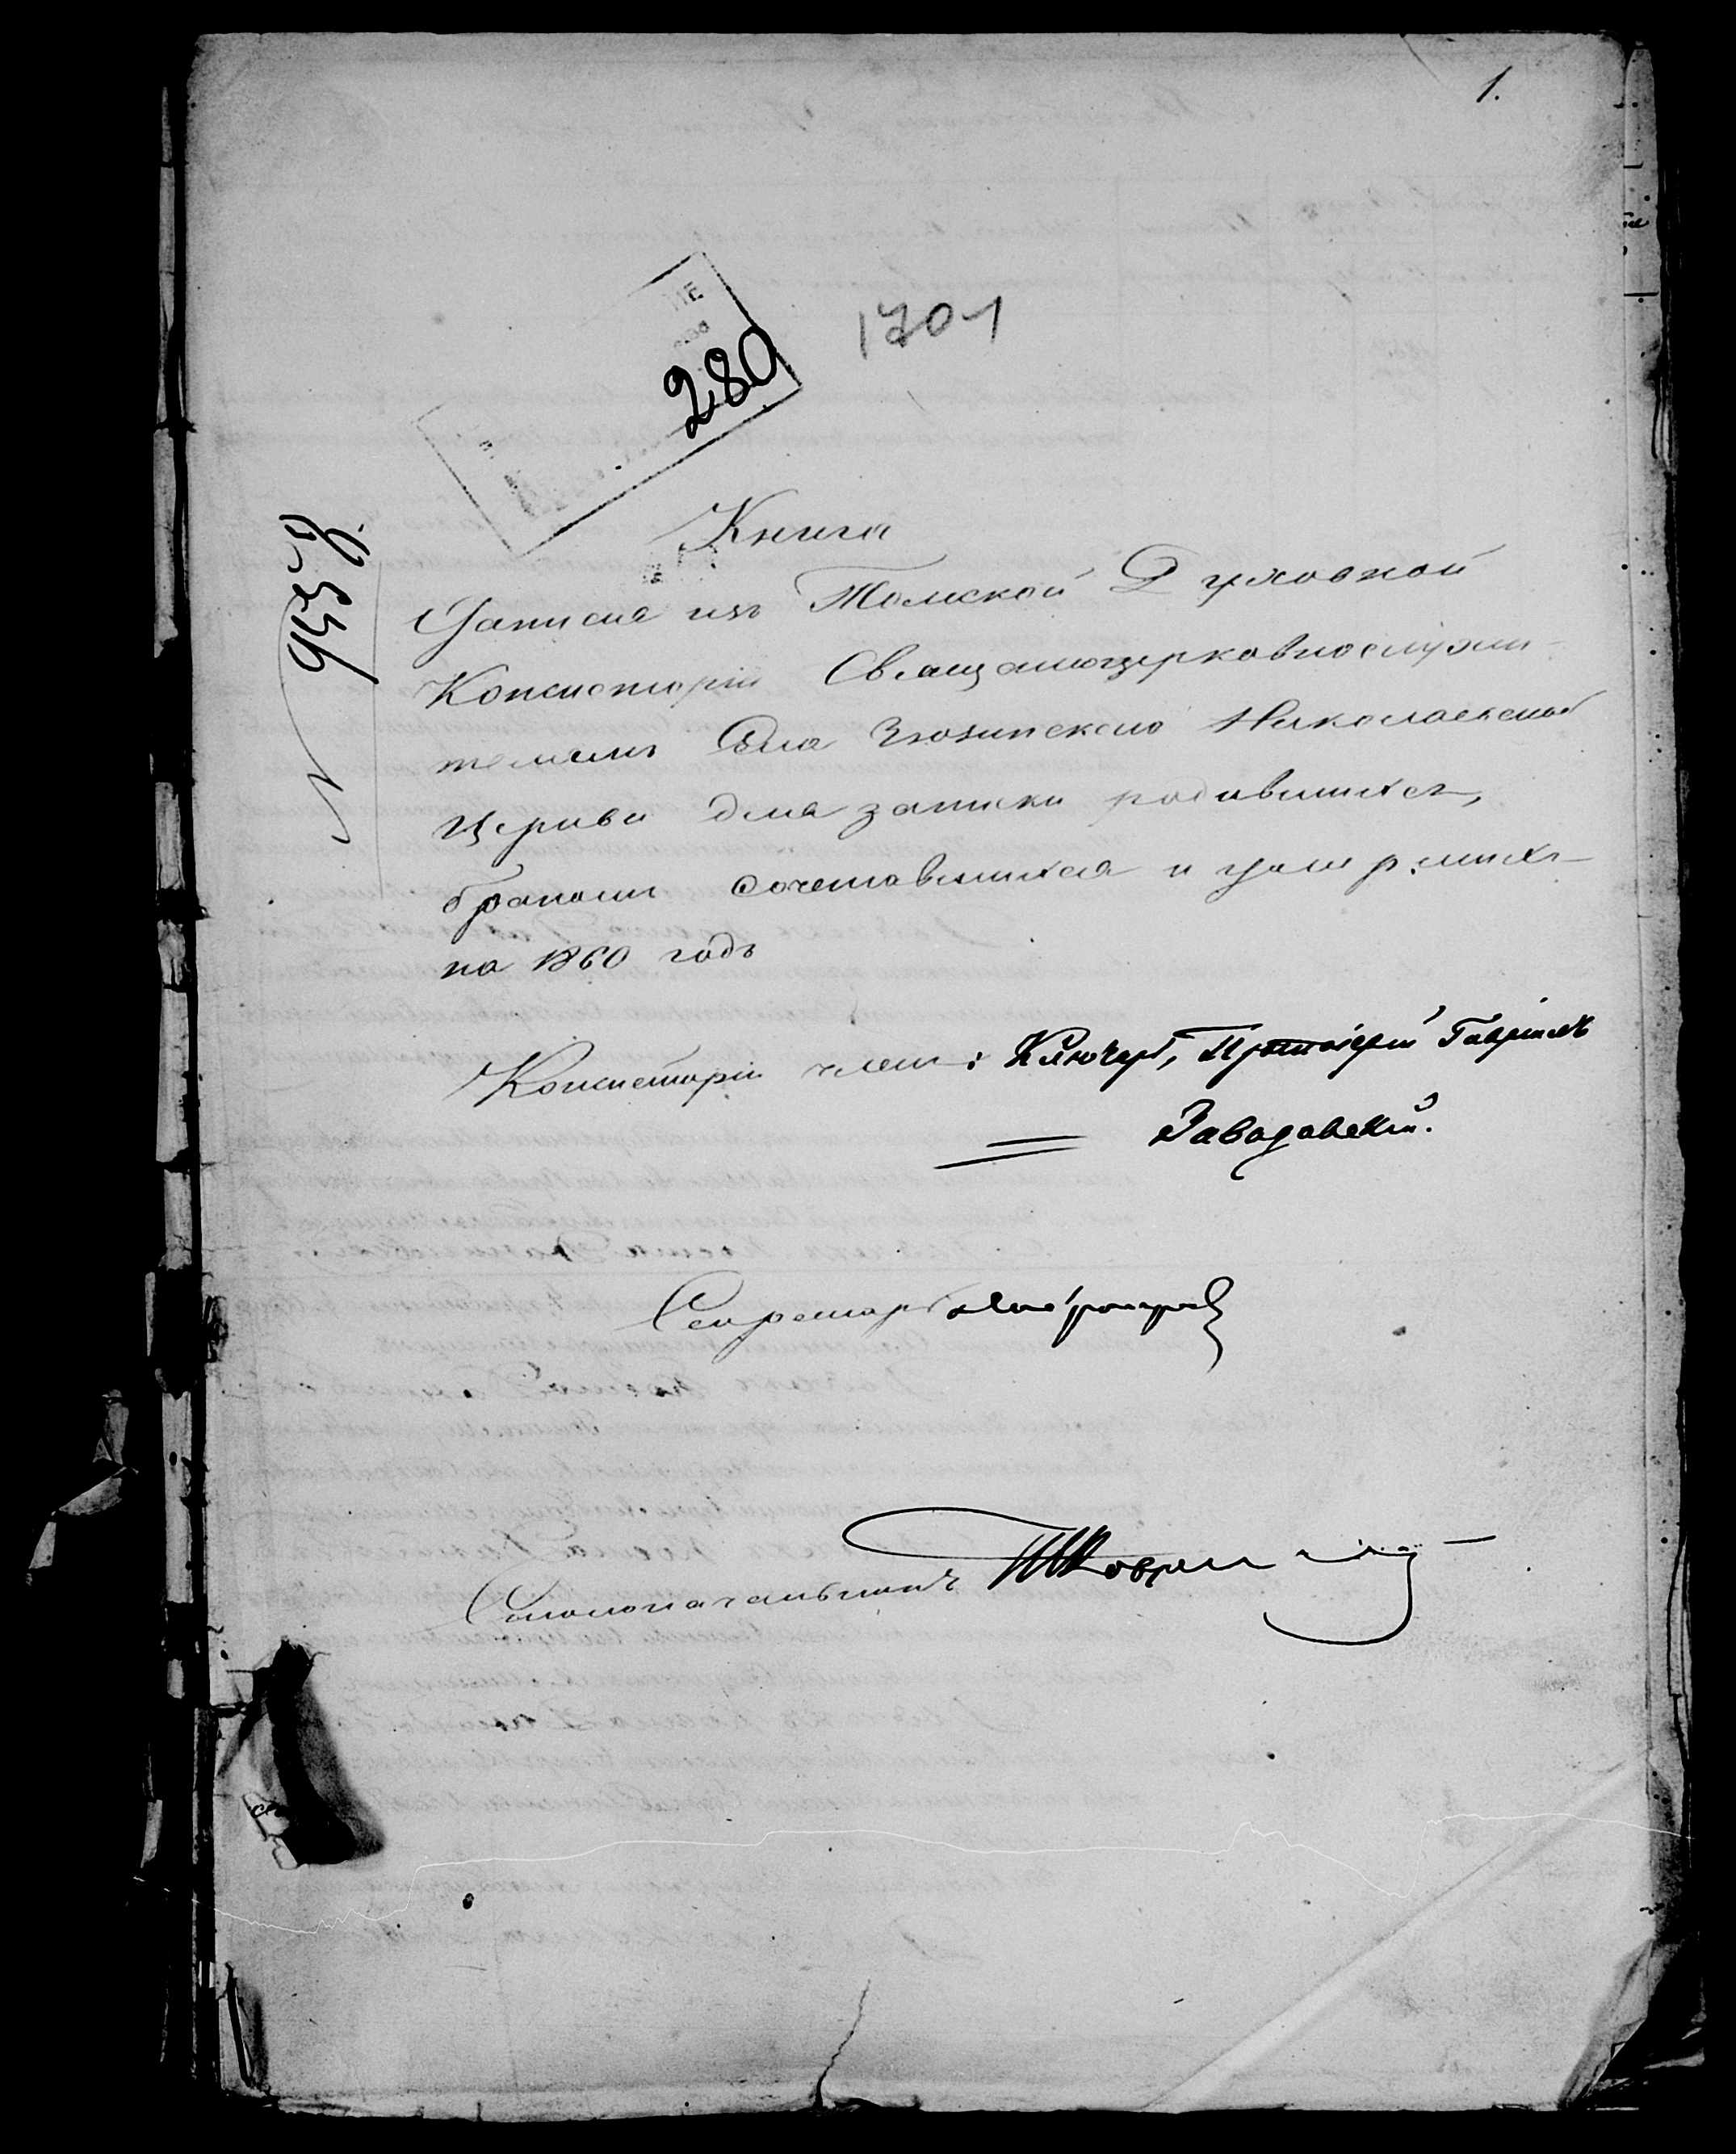 1.
1701
280
Книга
Данная изъ Томской Духовной
Консисторіи Священноцерковнослужи-
телямъ Села Зюзинскаго Николаевской
Церкви для записки родившихся,
бракомъ сочетавшихся и умершихъ
на 1860 годъ
Консисторіи членъ: Ключарь, Протоіерей Гавріилъ
Заводовскій.
Секретарь
Столоначальникъ